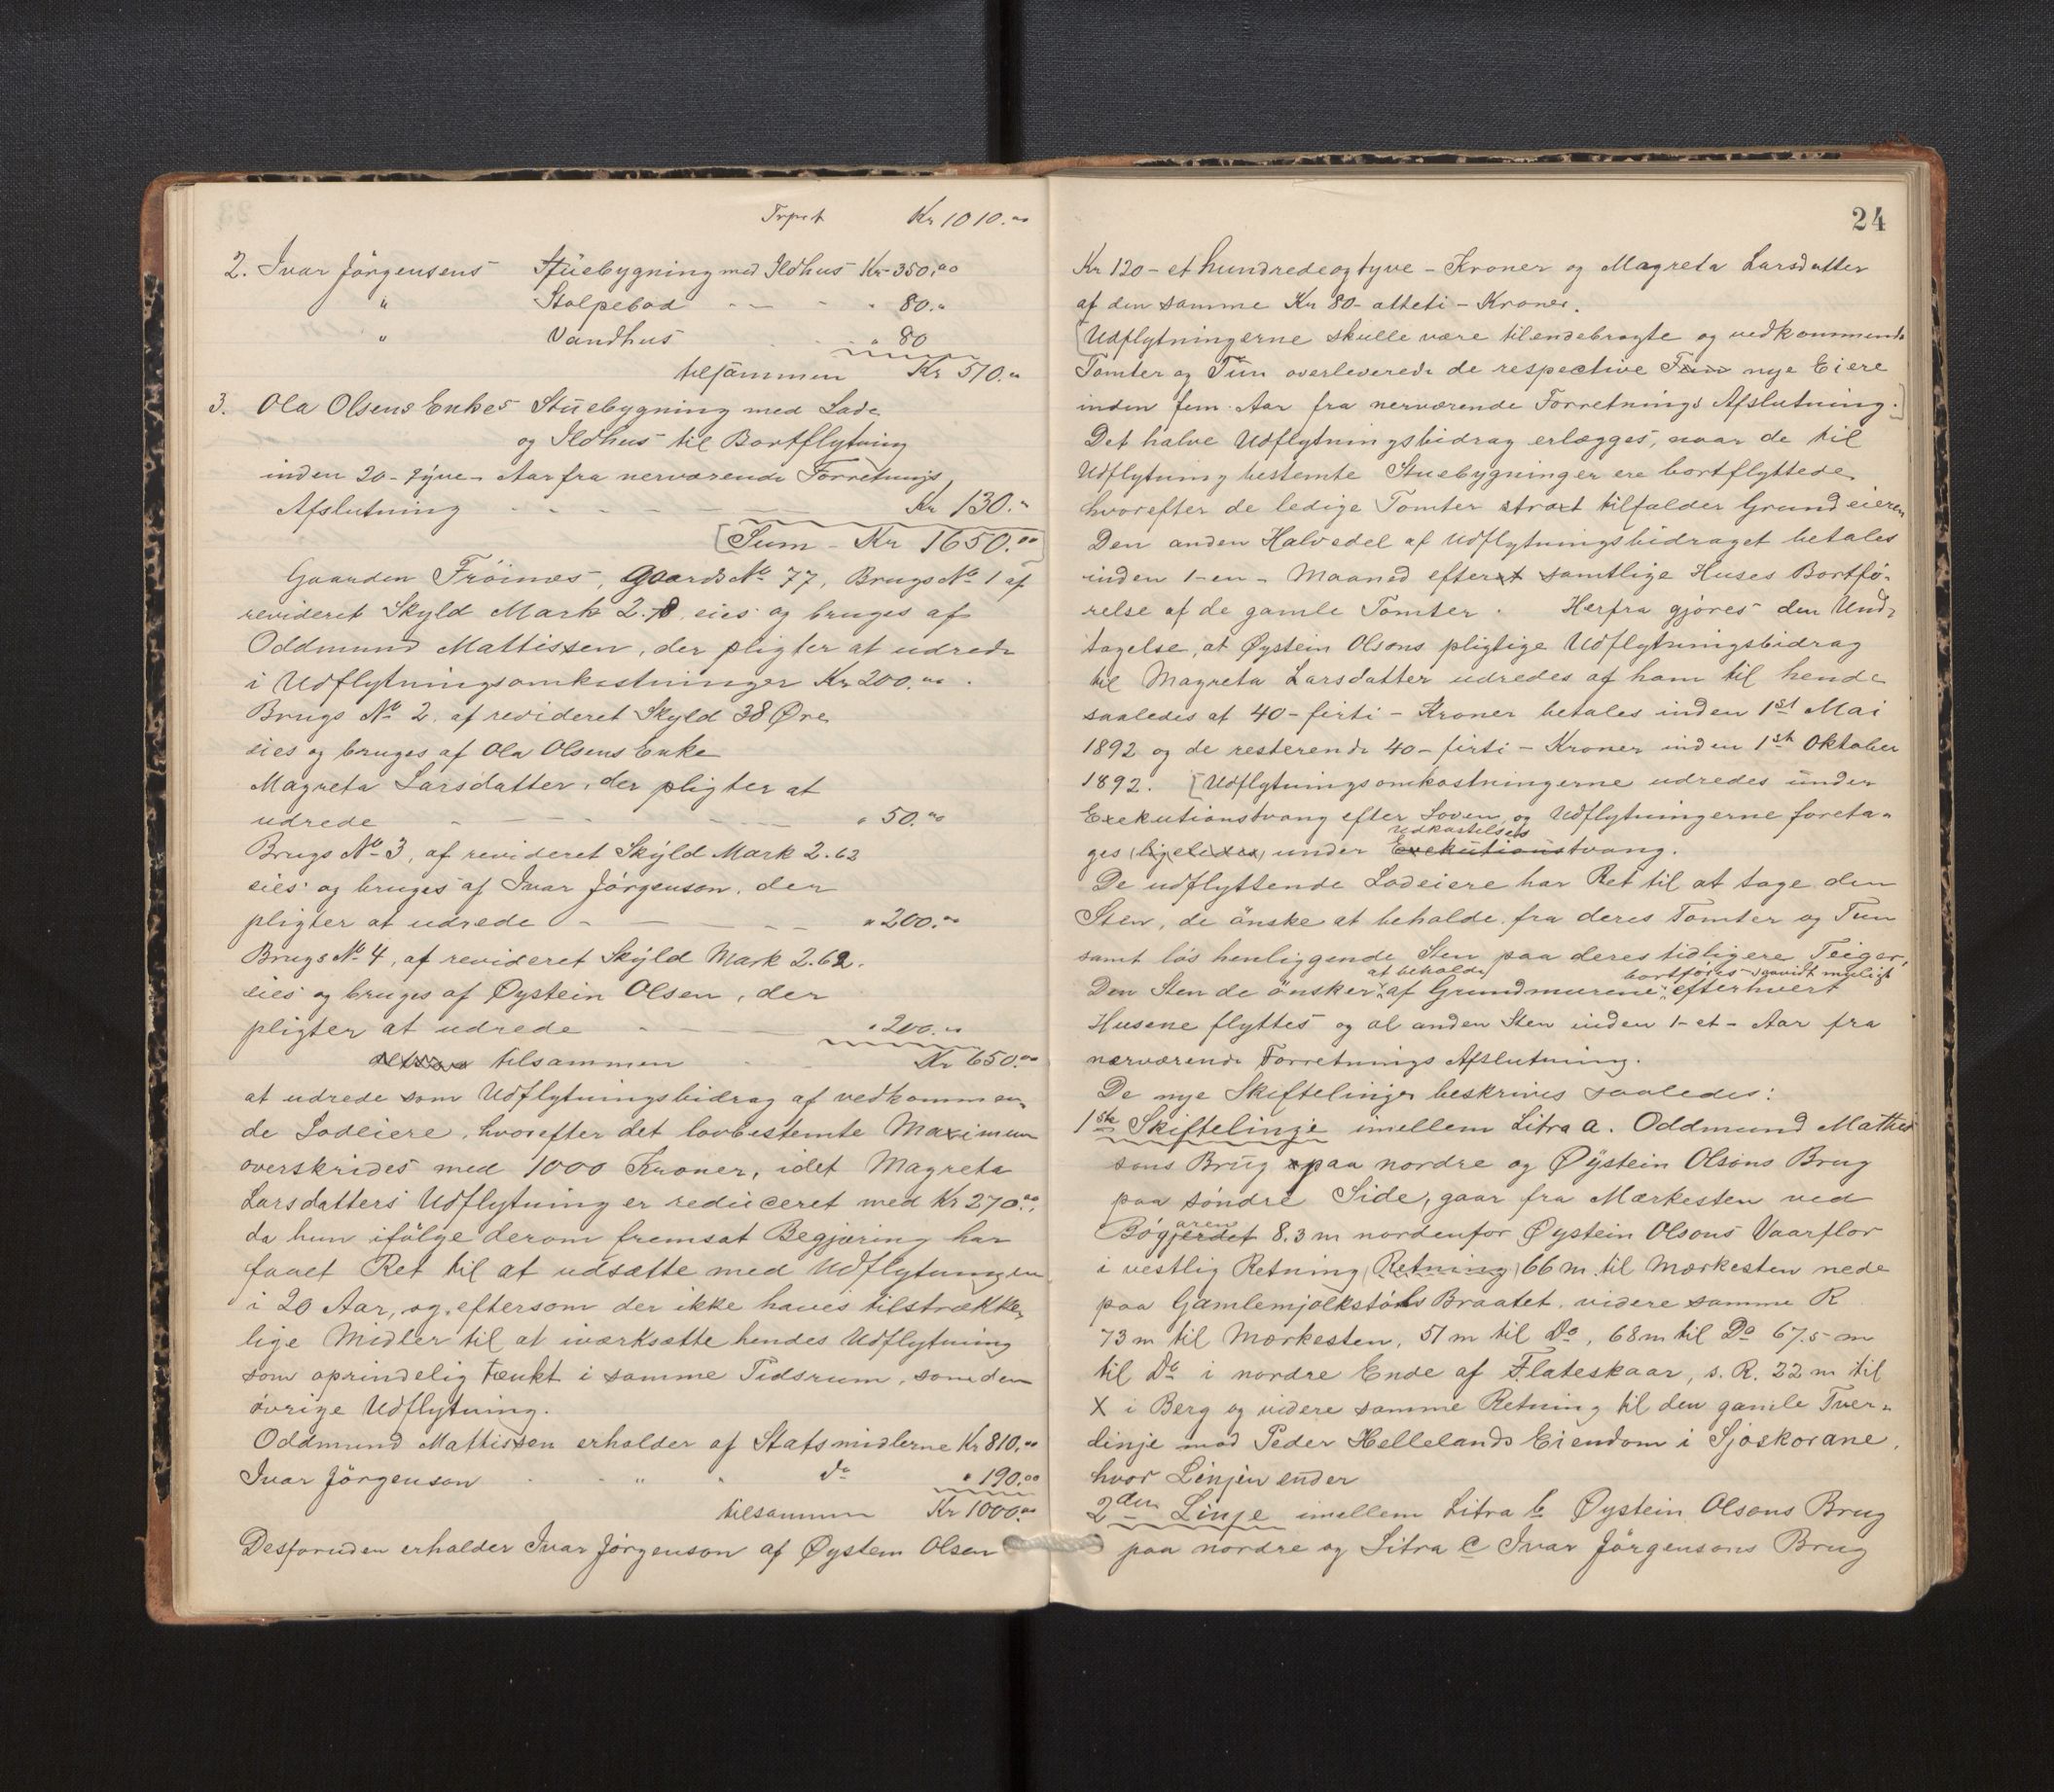 Trpst Kr 1010.00
2. Ivar Jörgensens Stuebygning med Ildhus Kr 350.00
" Stolpebod - - - " 80."
" Vandhus " 80
tilsammen Kr 510."
3. Ola Olsens Enkes Stuebygning med Lade
og Ildhus til Bortflytning
inden 20 - tyve - Aar fra nerværende Forretnings
Afslutning - - - - Kr 130."
Sum - Kr 1650.00
Gaarden Fröines, Gaards No 77, Brugs No 1 af
revideret Skyld Mark 2.78 eies og bruges af
Oddmund Mattissen, der pligter at udrede
i Udflytningsomkostninger Kr 200.00.
Brugs No 2, af revideret Skyld 38 Øre
eies og bruges af Ola Olsens Enke
Magreta Larsdatter, der pligter at
udrede - - - - " 50.00
Brugs No 3, af revideret Skyld Mark 2.62
eies og bruges af Ivar Jörgenson, der
pligter at udrede - - - - " 200.00
Brugs No 4, af revideret Skyld Mark 2.62.
eies og bruges af Øystein Olsen, der
pligter at udrede - - " 200.00
tilsammen Kr 650.00
at udrede som Udflytningsbidrag af vedkommen-
de Lodeiere, hvorefter det lovbestemte Maximum
overskrides med 1000 Kroner, idet Magreta
Larsdatters Udflytning er reduceret med Kr 270.00,
da hun ifölge derom fremsat Begjæring har
faaet Ret til at udsætte med Udflytningen
i 20 Aar, og eftersom der ikke haves tilstrække-
lige Midler til at iværksætte hendes Udflytning
som oprindelig tænkt i samme Tidsrum, som den
övrige Udflytning.
Oddmund Mattissen erholder af Statsmidlerne Kr 810.00
Ivar Jörgenson - - " " do " 190.00
tilsammen Kr 1000.00
Desforuden erholder Ivar Jörgenson af Øystein Olsen
24
Kr 120 - et hundredeogtyve - Kroner og Magreta Larsdatter
af den samme Kr 80 - otteti - Kroner.
[Udflytningerne skulle være tilendebragte og vedkommende
Tomter og Tun overleverede de respective Tun nye Eiere
inden fem Aar fra nerværende Forretnings Afslutning.]
Det halve Udflytningsbidrag erlægges, naar de til
Udflytning bestemte Stuebygninger ere bortflyttede
hvorefter de ledige Tomter strax tilfalder Grundeieren
Den anden Halvedel af Udflytningsbidraget betales
inden 1 - en - Maaned efter samtlige Huses Bortfö-
relse af de gamle Tomter. Herfra gjöres den Und-
tagelse, at Øystein Olsons pligtige Udflytningsbidrag
til Magreta Larsdatter udredes af ham til hende
saaledes at 40 - firti - Kroner betales inden 1st Mai
1892 og de resterende 40 - firti - Kroner inden 1st Oktober
1892. [Udflytningsomkostningerne udredes under
Exekutionstvang efter Loven, og Udflytningerne foreta-
udkastelses
ges (ligeledes) under Exekutionstvang.
De udflyttende Lodeiere har Ret til at tage den
Sten, de önske at beholde fra deres Tomter og Tun
samt lös henliggende Sten paa deres tidligere Teiger,
at beholde bortföres saavidt muligt
Den Sten de önsker af Grundmurene efterhvert
Husene flyttes og al anden Sten inden 1 - et - Aar fra
nærværende Forretnings Afslutning.
De nye Skiftelinjer beskrives saaledes:
1ste Skiftelinje imellem Litra a. Oddmund Mathis
sons Brug paa nordre og Øystein Olsons Brug
paa söndre Side, gaar fra Mærkesten ved
aren
Bögjerdet 8.3 m nordenfor Øystein Olsons Vaarflor
i vestlig Retning (Retning) 66 m til Mærkesten nede
paa Gamlemjölkstöls Braatet, videre samme R
73 m til Mærkesten, 51 m til Do, 68 m til Do 67.5 m
til Do i nordre Ende af Flateskaar, s. R. 22 m til
X i Berg og videre samme Retning til den gamle Tver-
linje mod Peder Hellelands Eiendom i Sjöskorane,
hvor Linjen ender
2den Linje imellem Litra b Øystein Olsons Brug
paa nordre og Litra c Ivar Jörgensons Brug